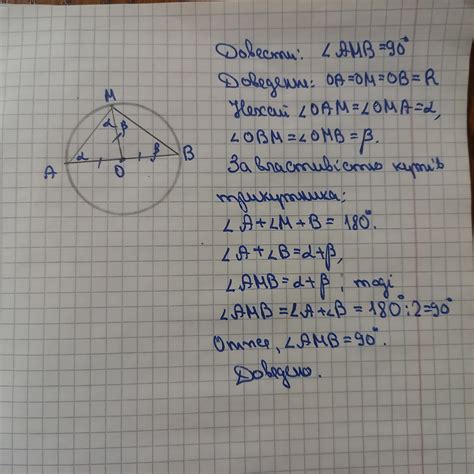 M
α
β
A
α
O
β
B
Довести: ∠AMB = 90°
Доведення: OA = OM = OB = R
Нехай ∠OAM = ∠OMA = α,
∠OBM = ∠OMB = β.
За властивістю кутів
трикутника:
∠A + ∠M + B = 180°.
∠A + ∠B = α + β,
∠AMB = α + β ; тоді
∠AMB = ∠A + ∠B = 180° : 2 = 90°
Отже, ∠AMB = 90°.
Доведено.